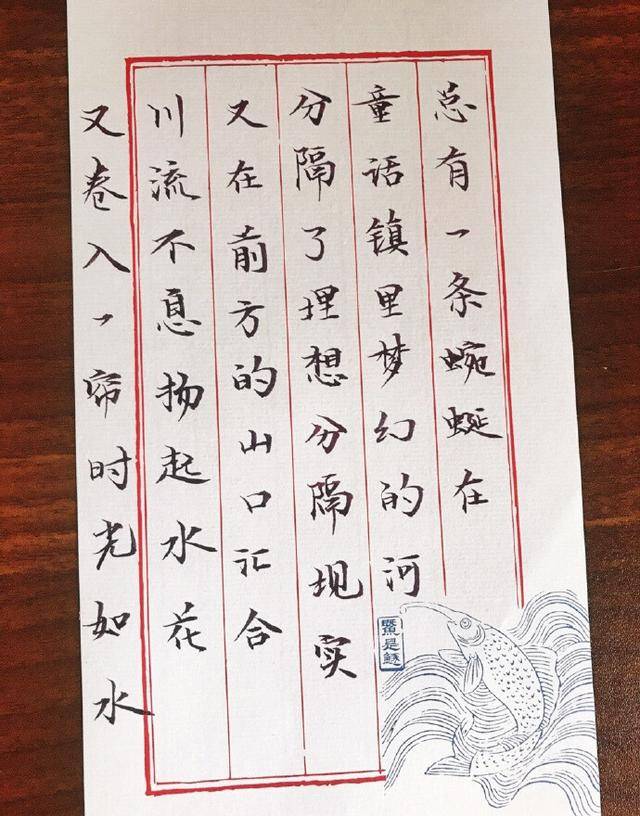 总有一条蜿蜒在
童话镇里梦幻的河
分隔了理想分隔现实
又在前方的山口汇合
川流不息扬起水花
又卷入一帘时光如水